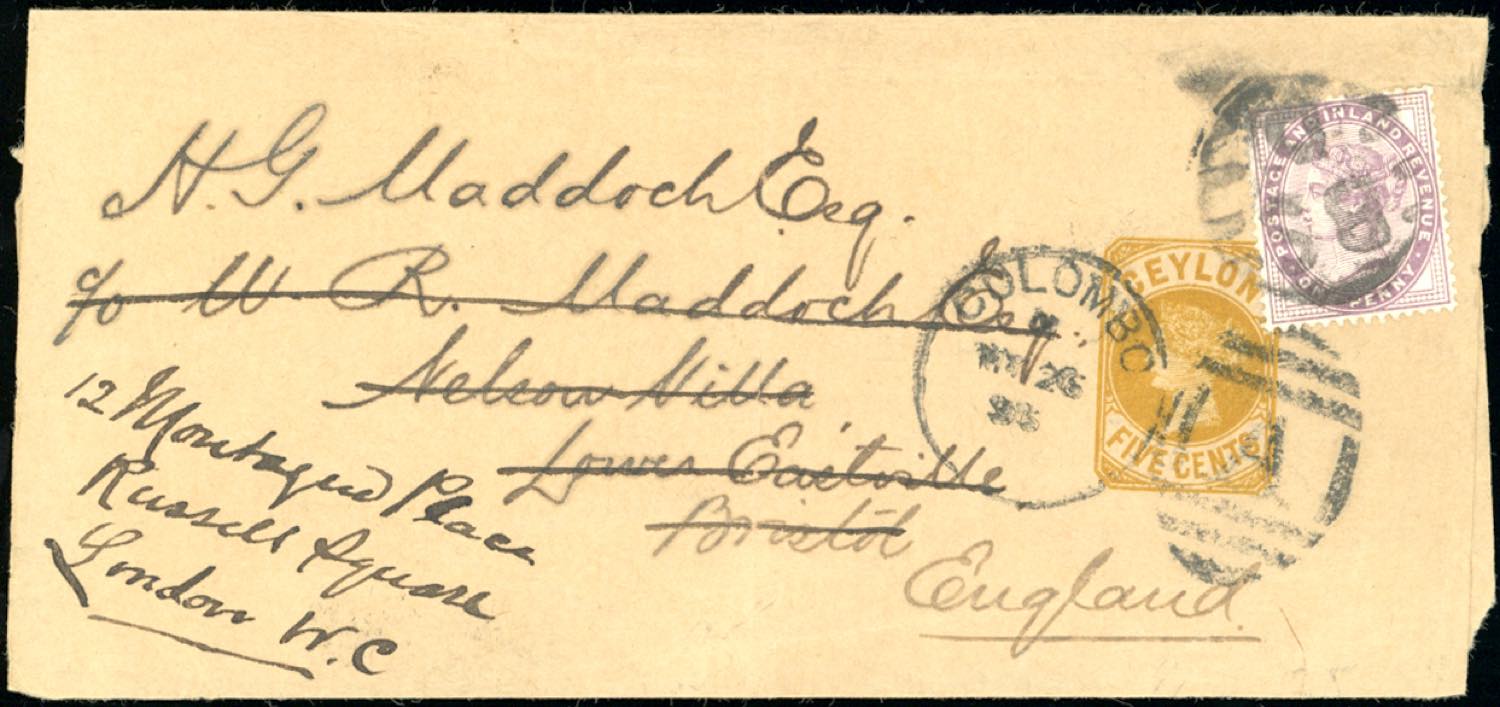 H. G. Maddock Esq.
c/o W. R. Maddock Esq.,
Nelson Villa
Lower Eastville
Bristol
England.
12 Montague Place
Russell Square
London W.C
COLOMBO
MY 26
CEYLON
FIVE CENTS
POSTAGE AND INLAND REVENUE
ONE PENNY